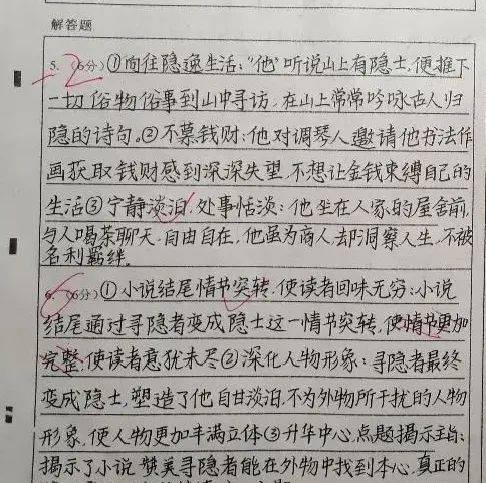 解答题
5. (6分) ①向往隐逸生活:"他"听说山上有隐士,便推下
一切俗物俗事到山中寻访,在山上常常吟咏古人归
隐的诗句。②不慕钱财:他对调琴人邀请他书法作
画获取钱财感到深深失望,不想让金钱束缚自己的
生活③宁静淡泊,处事恬淡:他坐在人家的屋舍前,
与人喝茶聊天,自由自在,他虽为商人,却洞察人生,不被
名利羁绊。
6. (6分) ①小说结尾情节突转,使读者回味无穷:小说
结尾通过寻隐者变成隐士这一情节突转,使情节更加
完整,使读者意犹未尽②深化人物形象:寻隐者最终
变成隐士,塑造了他自甘淡泊,不为外物所干扰的人物
形象,使人物更加丰满立体③升华中心,点题揭示主旨:
揭示了小说赞美寻隐者能在外物中找到本心,真正的